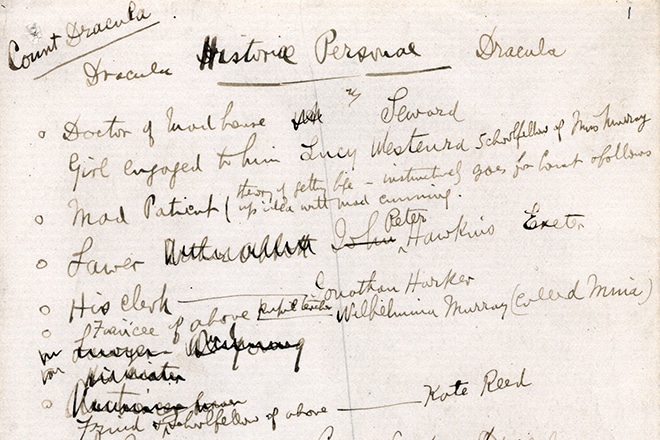 1
Count Dracula
Dracula Historiæ Personae Dracula
Doctor of Mad house Seward
Girl engaged to him Lucy Westenra schoolfellow of Miss Murray
Mad Patient (theory of getting life – instinctively goes for Count & follows
up idea with mad cunning.
Lawer John Peter Hawkins Exeter
His clerk — Jonathan Harker
Fiancee of above pupil teacher Wilhelmina Murray (called Mina)
Friend & schoolfellow of above — Kate Reed